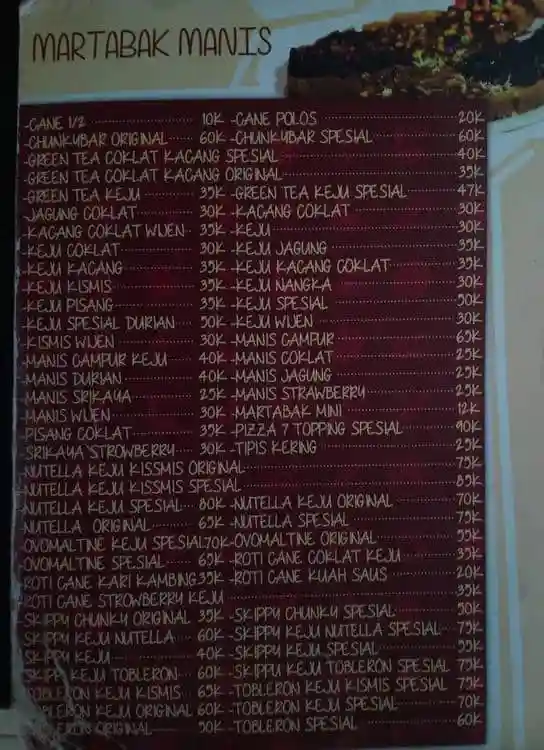 MARTABAK MANIS
-CANE 1/2 10K -CANE POLOS 20K
-CHUNKYBAR ORIGINAL 60K -CHUNKYBAR SPESIAL 60K
-GREEN TEA COKLAT KACANG SPESIAL 40K
-GREEN TEA COKLAT KACANG ORIGINAL 35K
-GREEN TEA KEJU 35K -GREEN TEA KEJU SPESIAL 47K
-JAGUNG COKLAT 30K -KACANG COKLAT 30K
-KACANG COKLAT WIJEN 35K -KEJU 30K
-KEJU COKLAT 30K -KEJU JAGUNG 35K
-KEJU KACANG 35K -KEJU KACANG COKLAT 35K
-KEJU KISMIS 35K -KEJU NANGKA 30K
-KEJU PISANG 35K -KEJU SPESIAL 50K
-KEJU SPESIAL DURIAN 50K -KEJU WIJEN 30K
-KISMIS WIJEN 30K -MANIS CAMPUR 65K
-MANIS CAMPUR KEJU 40K -MANIS COKLAT 25K
-MANIS DURIAN 40K -MANIS JAGUNG 25K
-MANIS SRIKAYA 25K -MANIS STRAWBERRY 25K
-MANIS WIJEN 30K -MARTABAK MINI 12K
-PISANG COKLAT 35K -PIZZA 7 TOPPING SPESIAL 90K
-SRIKAYA STROWBERRY 30K -TIPIS KERING 25K
-NUTELLA KEJU KISSMIS ORIGINAL 75K
-NUTELLA KEJU KISSMIS SPESIAL 85K
-NUTELLA KEJU SPESIAL 80K -NUTELLA KEJU ORIGINAL 70K
-NUTELLA ORIGINAL 65K -NUTELLA SPESIAL 75K
-OVOMALTINE KEJU SPESIAL 70K -OVOMALTINE ORIGINAL 55K
-OVOMALTINE SPESIAL 65K -ROTI CANE COKLAT KEJU 35K
-ROTI CANE KARI KAMBING 35K -ROTI CANE KUAH SAUS 20K
-ROTI CANE STROWBERRY KEJU 35K
-SKIPPY CHUNKY ORIGINAL 35K -SKIPPY CHUNKY SPESIAL 50K
-SKIPPY KEJU NUTELLA 60K -SKIPPY KEJU NUTELLA SPESIAL 75K
-SKIPPY KEJU 40K -SKIPPY KEJU SPESIAL 55K
-SKIPPY KEJU TOBLERON 60K -SKIPPY KEJU TOBLERON SPESIAL 75K
TOBLERON KEJU KISMIS 65K -TOBLERON KEJU KISMIS SPESIAL 75K
TOBLERON KEJU ORIGINAL 60K -TOBLERON KEJU SPESIAL 70K
TOBLERON ORIGINAL 50K -TOBLERON SPESIAL 60K